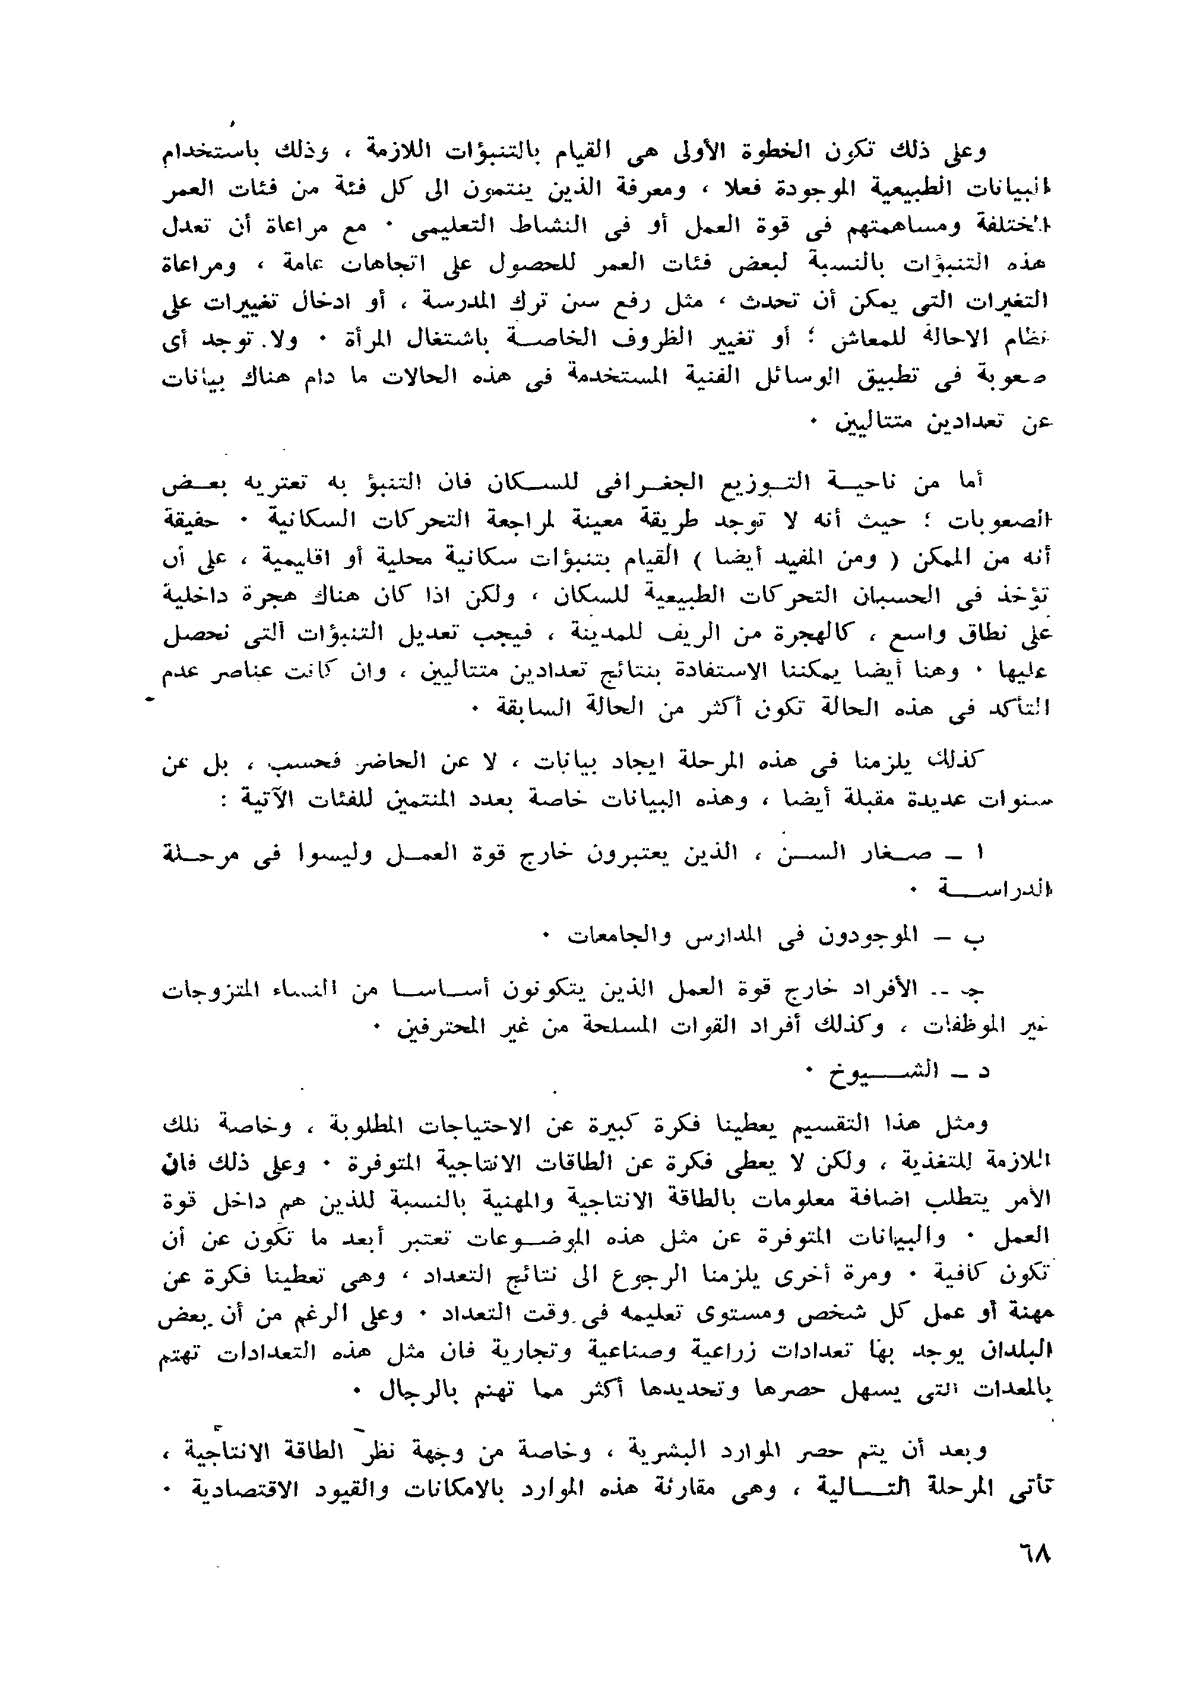 وعلى ذلك تكون الخطوة الأولى هى القيام بالتنبؤات اللازمة ، وذلك باستخدام
البيانات الطبيعية الموجودة فعلا ، ومعرفة الذين ينتمون الى كل فئة من فئات العمر
المختلفة ومساهمتهم فى قوة العمل أو فى النشاط التعليمى ٠ مع مراعاة أن تعدل
هذه التنبؤات بالنسبة لبعض فئات العمر للحصول على اتجاهات عامة ، ومراعاة
التغيرات التى يمكن أن تحدث ، مثل رفع سن ترك المدرسة ، أو ادخال تغييرات على
نظام الاحالة للمعاش ؛ أو تغيير الظروف الخاصـة باشتغال المرأة ٠ ولا توجد أى
صعوبة فى تطبيق الوسائل الفنية المستخدمة فى هذه الحالات ما دام هناك بيانات
عن تعدادين متتاليين ٠
أما من ناحيـة التـوزيع الجغـرافى للسـكان فان التنبؤ به تعتريه بعـض
الصعوبات ؛ حيث أنه لا توجد طريقة معينة لمراجعة التحركات السكانية ٠ حقيقة
أنه من الممكن ( ومن المفيد أيضا ) القيام بتنبؤات سكانية محلية أو اقليمية ، على أن
تؤخذ فى الحسبان التحركات الطبيعية للسكان ، ولكن اذا كان هناك هجرة داخلية
على نطاق واسع ، كالهجرة من الريف للمدينة ، فيجب تعديل التنبؤات التى نحصل
عليها ٠ وهنا أيضا يمكننا الاستفادة بنتائج تعدادين متتاليين ، وان كانت عناصر عدم
التأكد فى هذه الحالة تكون أكثر من الحالة السابقة ٠
كذلك يلزمنا فى هذه المرحلة ايجاد بيانات ، لا عن الحاضر فحسب ، بل عن
سنوات عديدة مقبلة أيضا ، وهذه البيانات خاصة بعدد المنتمين للفئات الآتية :
ا ــ صـغار السـن ، الذين يعتبرون خارج قوة العمـل وليسوا فى مرحـلة
الدراســـة ٠
ب ــ الموجودون فى المدارس والجامعات ٠
جـ ــ الأفراد خارج قوة العمل الذين يتكونون أسـاسـا من النساء المتزوجات
غير الموظفات ، وكذلك أفراد القوات المسلحة من غير المحترفين ٠
د ــ الشـــيوخ ٠
ومثل هذا التقسيم يعطينا فكرة كبيرة عن الاحتياجات المطلوبة ، وخاصة تلك
اللازمة للتغذية ، ولكن لا يعطى فكرة عن الطاقات الانتاجية المتوفرة ٠ وعلى ذلك فان
الأمر يتطلب اضافة معلومات بالطاقة الانتاجية والمهنية بالنسبة للذين هم داخل قوة
العمل ٠ والبيانات المتوفرة عن مثل هذه الموضـوعات تعتبر أبعد ما تكون عن أن
تكون كافية ٠ ومرة أخرى يلزمنا الرجوع الى نتائج التعداد ، وهى تعطينا فكرة عن
مهنة أو عمل كل شخص ومستوى تعليمه فى وقت التعداد ٠ وعلى الرغم من أن بعض
البلدان يوجد بها تعدادات زراعية وصناعية وتجارية فان مثل هذه التعدادات تهتم
بالمعدات التى يسهل حصرها وتحديدها أكثر مما تهتم بالرجال ٠
وبعد أن يتم حصر الموارد البشرية ، وخاصة من وجهة نظر الطاقة الانتاجية ،
تأتى المرحلة التـــالية ، وهى مقارنة هذه الموارد بالامكانات والقيود الاقتصادية ٠
٦٨